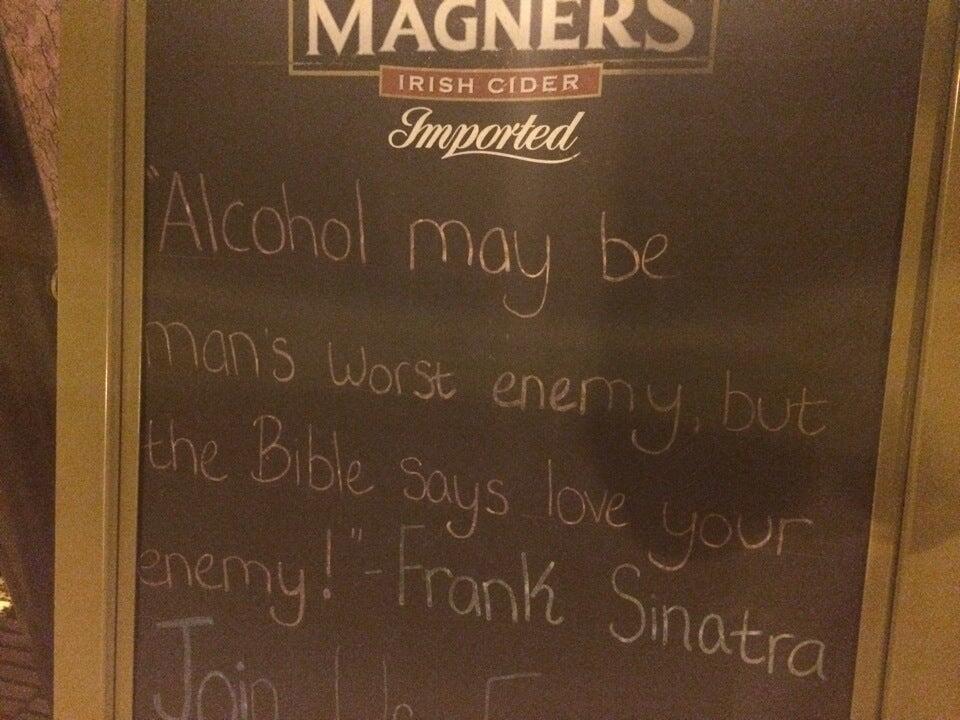 MAGNERS
IRISH CIDER
Imported
"Alcohol may be
man's worst enemy, but
the Bible says love your
enemy!" -Frank Sinatra
Join Us